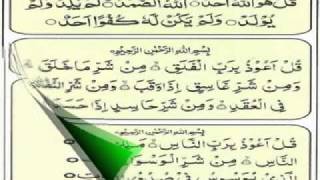 قُلْ هُوَ اللهُ اَحَدٌ ۝ اَللهُ الصَّمَدُ ۝ لَمْ يَلِدْ وَلَمْ
يُوْلَدْ ۝ وَلَمْ يَكُنْ لَّهٗ كُفُوًا اَحَدٌ ۝
بِسْمِ اللهِ الرَّحْمٰنِ الرَّحِيْمِ
قُلْ اَعُوْذُ بِرَبِّ الْفَلَقِ ۝ مِنْ شَرِّ مَا خَلَقَ ۝
وَمِنْ شَرِّ غَاسِقٍ اِذَا وَقَبَ ۝ وَمِنْ شَرِّ النَّفّٰثٰتِ
فِى الْعُقَدِ ۝ وَمِنْ شَرِّ حَاسِدٍ اِذَا حَسَدَ
بِسْمِ اللهِ الرَّحْمٰنِ الرَّحِيْمِ
قُلْ اَعُوْذُ بِرَبِّ النَّاسِ ۝
النَّاسِ ۝ مِنْ شَرِّ الْوَسْوَاسِ
الَّذِىْ يُوَسْوِسُ فِىْ صُدُوْرِ